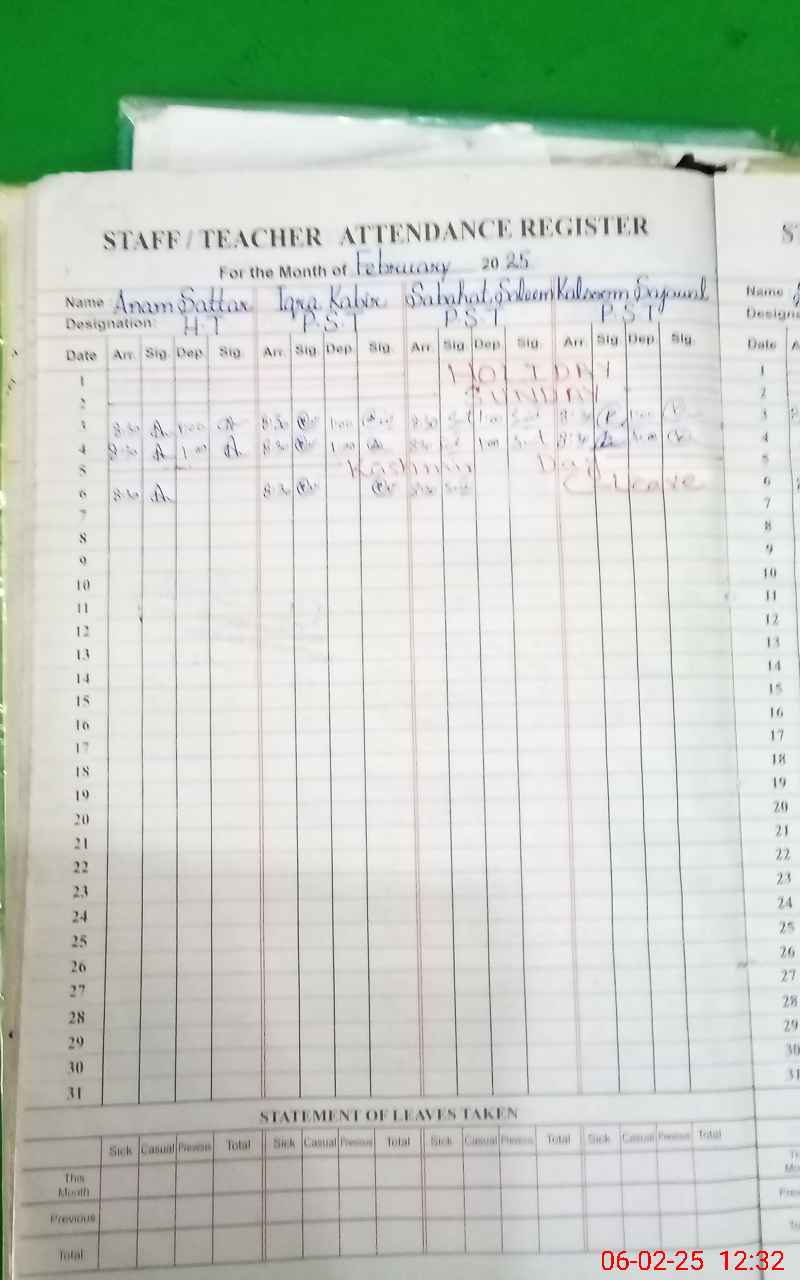 STAFF / TEACHER ATTENDANCE REGISTER
For the Month of February 2025
Name Anam Sattar Iqra Kabir Sabahat Saleem Kalsoom Name
Designation: H.T P.S.T P.S.T P.S.T
Date Arr. Sig. Dep. Sig. Arr. Sig. Dep. Sig. Arr. Sig. Dep. Sig. Arr. Sig. Dep. Sig. Date
1 HOLIDAY 1
2 SUNDAY 2
3 8:30 1:00 8:30 1:00 8:30 1:00 8:30 1:00 3
4 8:30 1:00 8:30 1:00 8:30 1:00 8:30 1:00 4
5 Kashmir Day 5
6 8:30 8:30 8:30 Leave 6
7 7
8 8
9 9
10 10
11 11
12 12
13 13
14 14
15 15
16 16
17 17
18 18
19 19
20 20
21 21
22 22
23 23
24 24
25 25
26 26
27 27
28 28
29 29
30 30
31 31
STATEMENT OF LEAVES TAKEN
Sick Casual Previous Total Sick Casual Previous Total Sick Casual Previous Total Sick Casual Previous Total
This
Month
Previous
Total
06-02-25 12:32